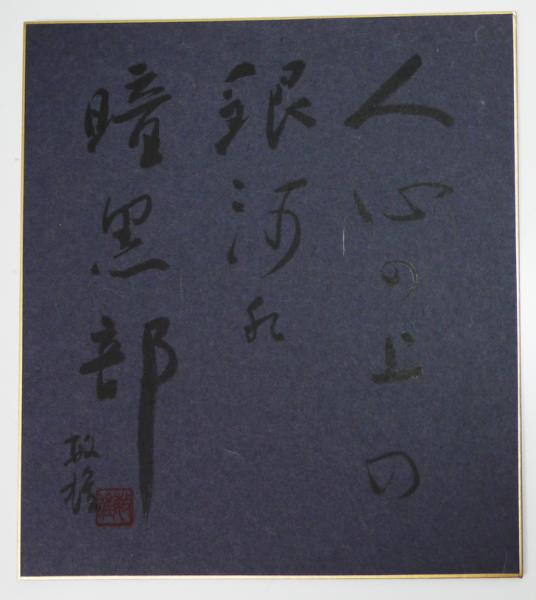 人心の上の
銀河の
暗黒部
敏雄